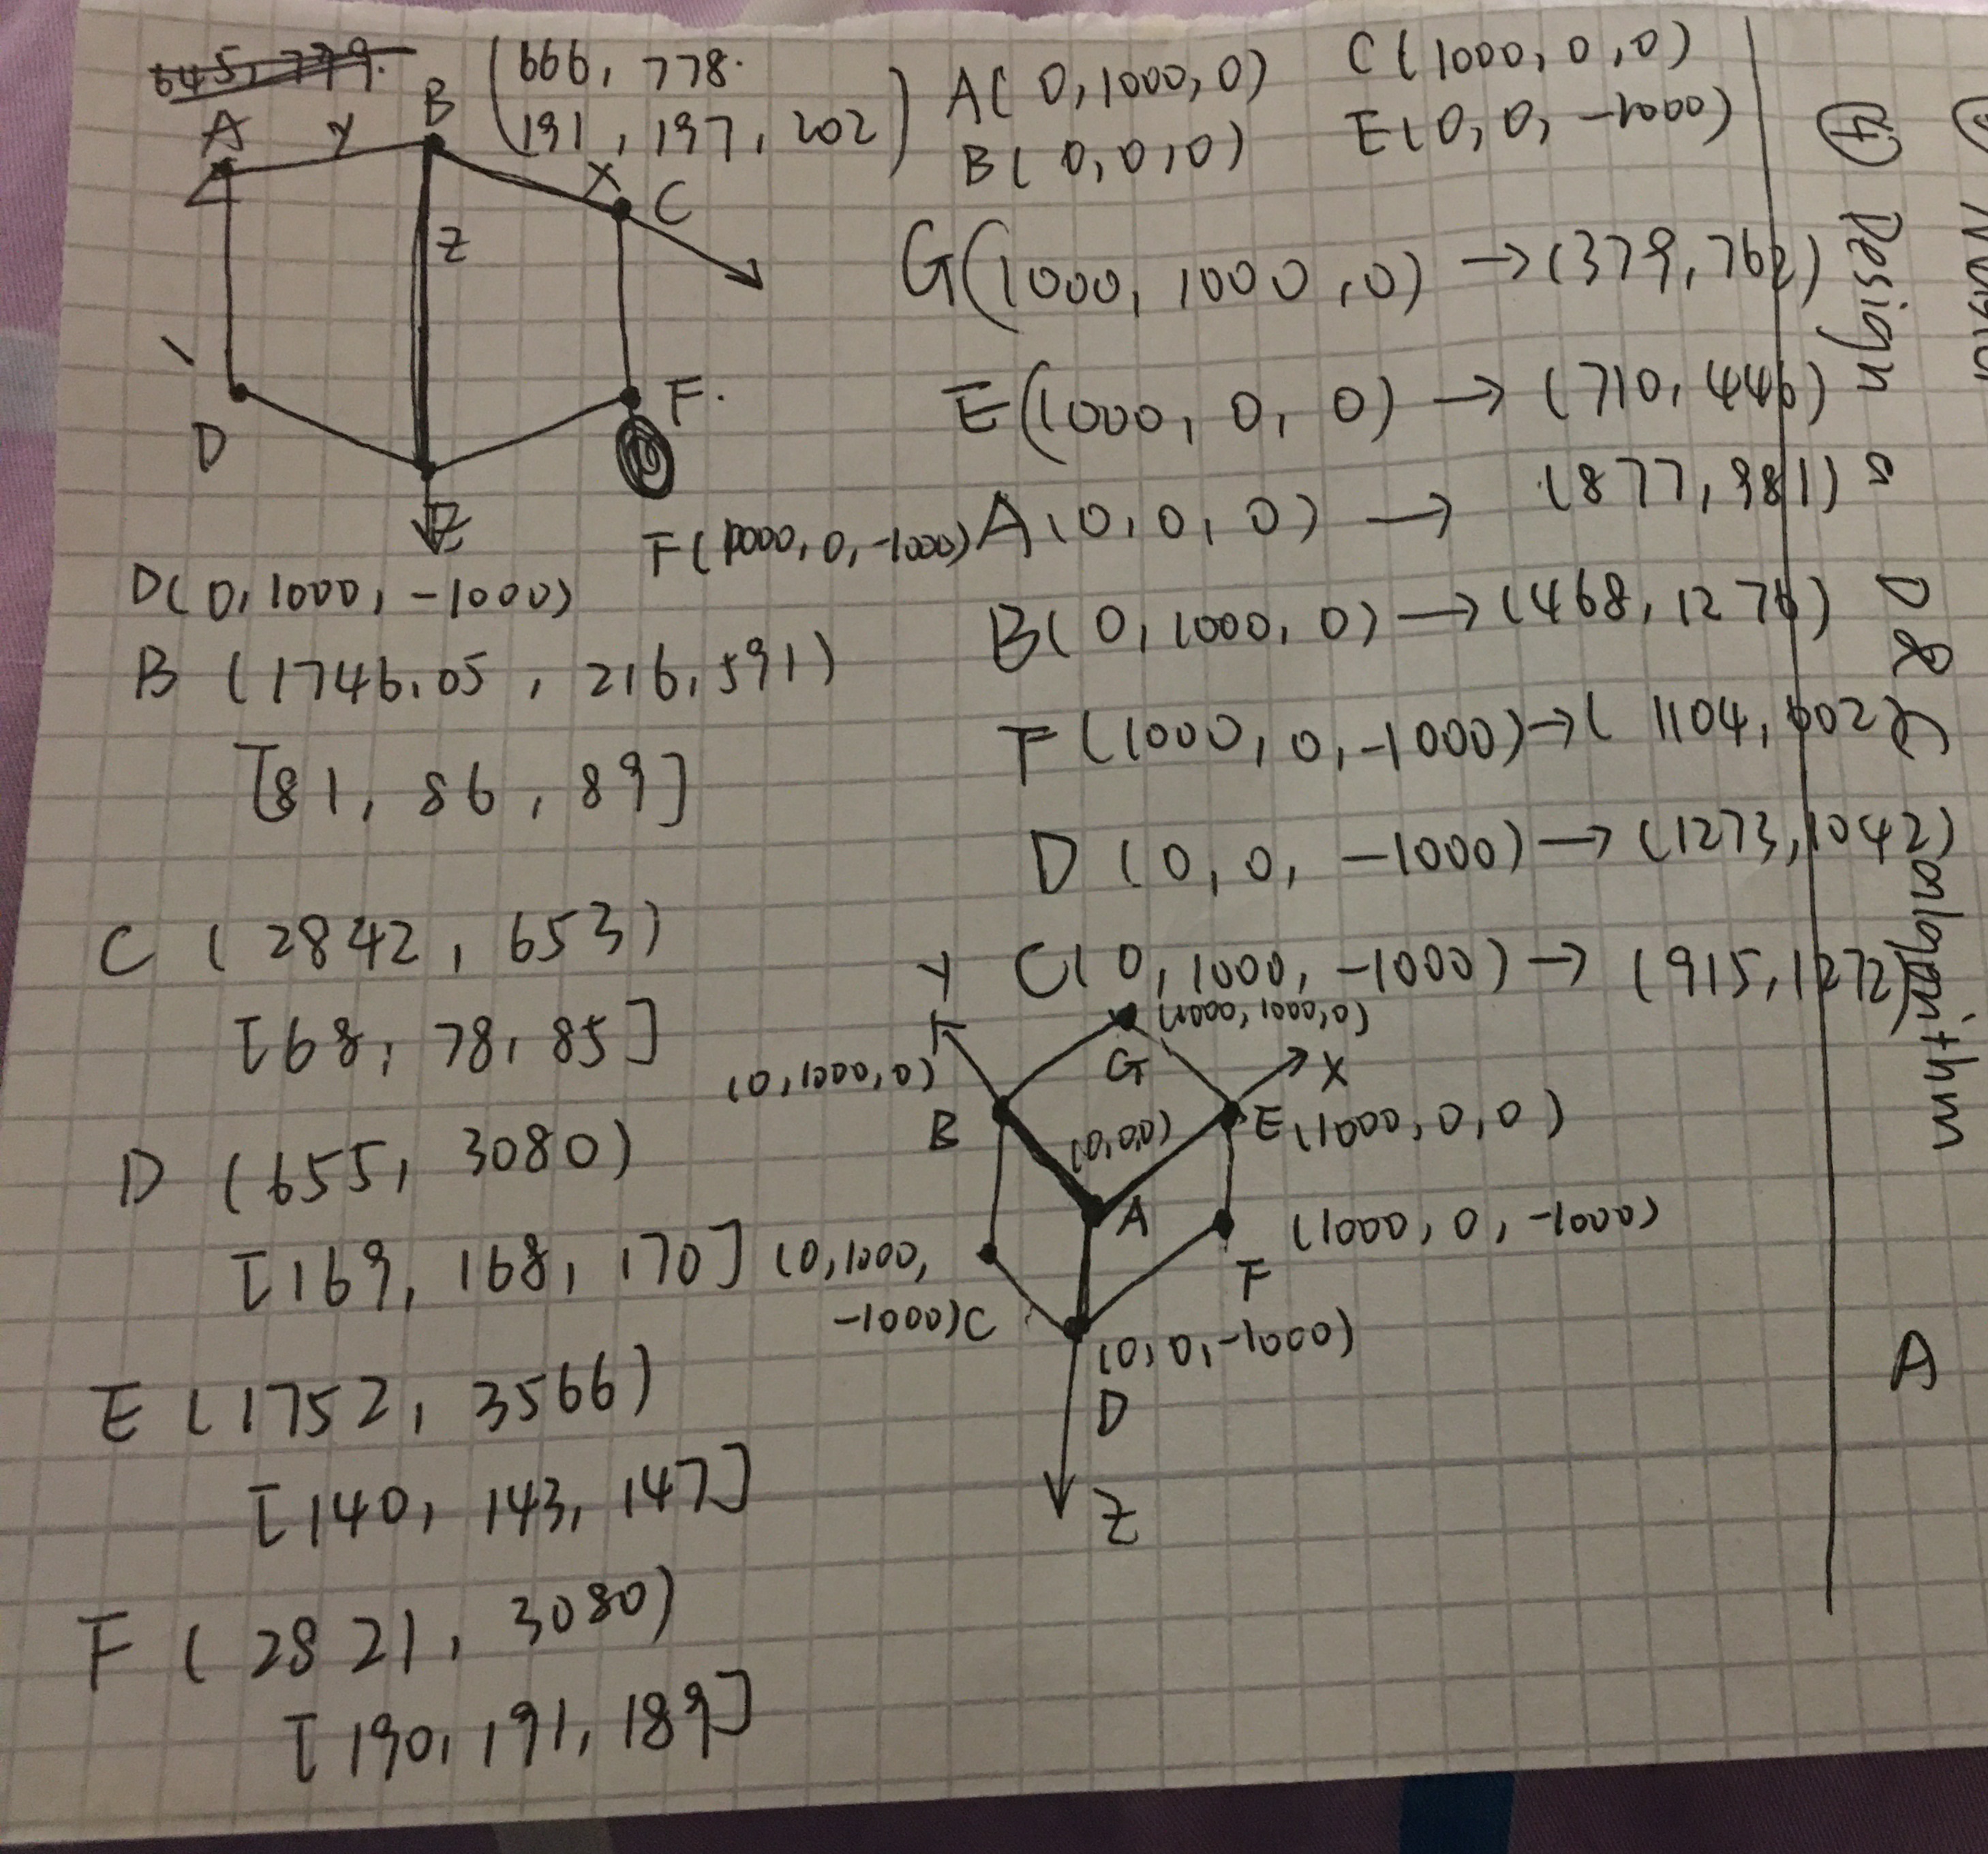 A
Y
B
(666, 778.
191, 197, 202)
X
C
Z
D
F.
Z
A(0, 1000, 0)
C(1000, 0, 0)
B(0, 0, 0)
E(0, 0, -1000)
F(1000, 0, -1000)
D(0, 1000, -1000)
B (1746.05, 216.591)
[81, 86, 89]
C (2842, 653)
[68, 78, 85]
D (655, 3080)
[169, 168, 170]
E (1752, 3566)
[140, 143, 147]
F (2821, 3080)
[190, 191, 189]
G(1000, 1000, 0) → (379, 762)
E(1000, 0, 0) → (710, 446)
A(0, 0, 0) → (877, 981)
B(0, 1000, 0) → (468, 1276)
F(1000, 0, -1000) → (1104, 602)
D(0, 0, -1000) → (1273, 1042)
C(0, 1000, -1000) → (915, 1272)
Y
(1000, 1000, 0)
G
X
(0, 1000, 0)
B
(0,0,0)
E(1000, 0, 0)
A
(1000, 0, -1000)
F
(0, 1000,
-1000)C
(0, 0, -1000)
D
Z
④ Design
A